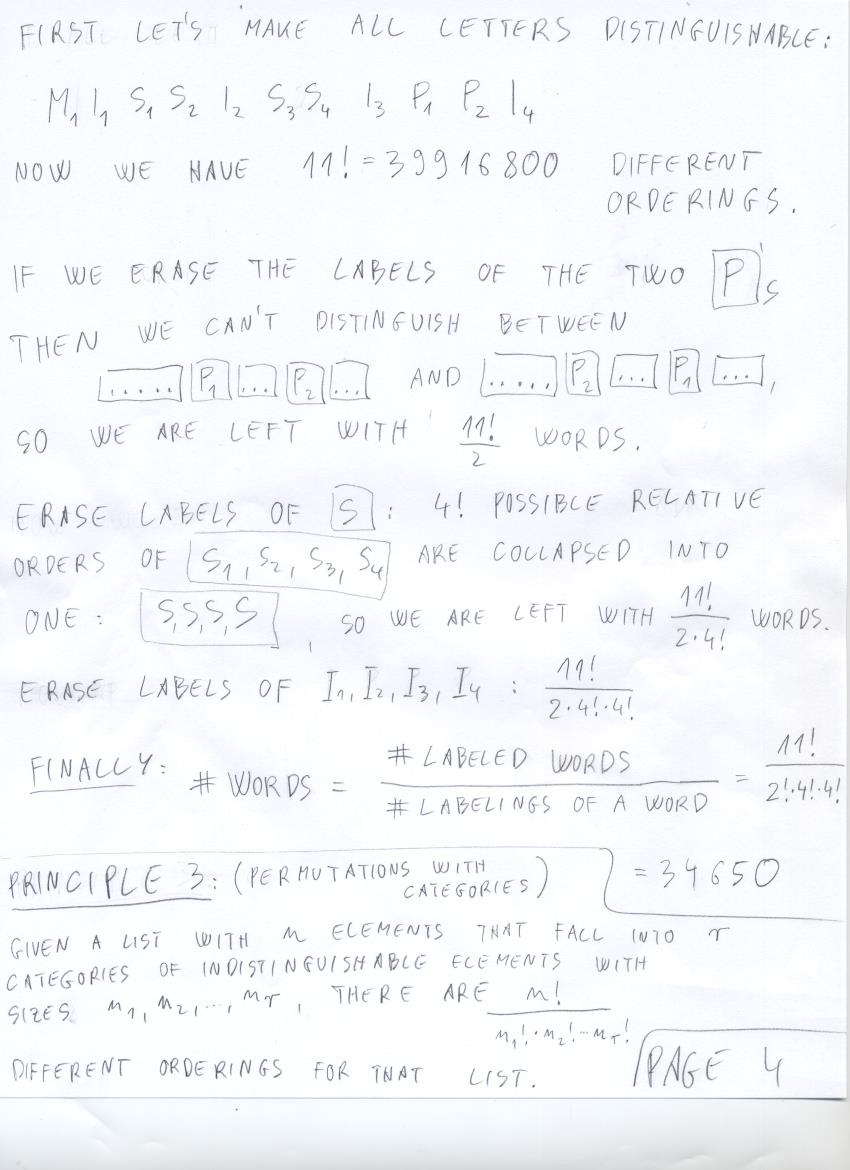 FIRST LET'S MAKE ALL LETTERS DISTINGUISHABLE:
M₁ I₁ S₁ S₂ I₂ S₃ S₄ I₃ P₁ P₂ I₄
NOW WE HAVE 11! = 39916800 DIFFERENT
ORDERINGS.
IF WE ERASE THE LABELS OF THE TWO P's
THEN WE CAN'T DISTINGUISH BETWEEN
..... P₁ ... P₂ ... AND ..... P₂ ... P₁ ...,
SO WE ARE LEFT WITH 11!/2 WORDS.
ERASE LABELS OF S: 4! POSSIBLE RELATIVE
ORDERS OF S₁, S₂, S₃, S₄ ARE COLLAPSED INTO
ONE: S,S,S,S, SO WE ARE LEFT WITH 11!/(2·4!) WORDS.
ERASE LABELS OF I₁, I₂, I₃, I₄ : 11!/(2·4!·4!)
FINALLY: # WORDS = # LABELED WORDS / # LABELINGS OF A WORD = 11!/(2!·4!·4!)
= 34650
PRINCIPLE 3: (PERMUTATIONS WITH
CATEGORIES)
GIVEN A LIST WITH n ELEMENTS THAT FALL INTO r
CATEGORIES OF INDISTINGUISHABLE ELEMENTS WITH
SIZES n₁, n₂, ..., nᵣ, THERE ARE n!/(n₁!·n₂!···nᵣ!)
DIFFERENT ORDERINGS FOR THAT LIST.
PAGE 4